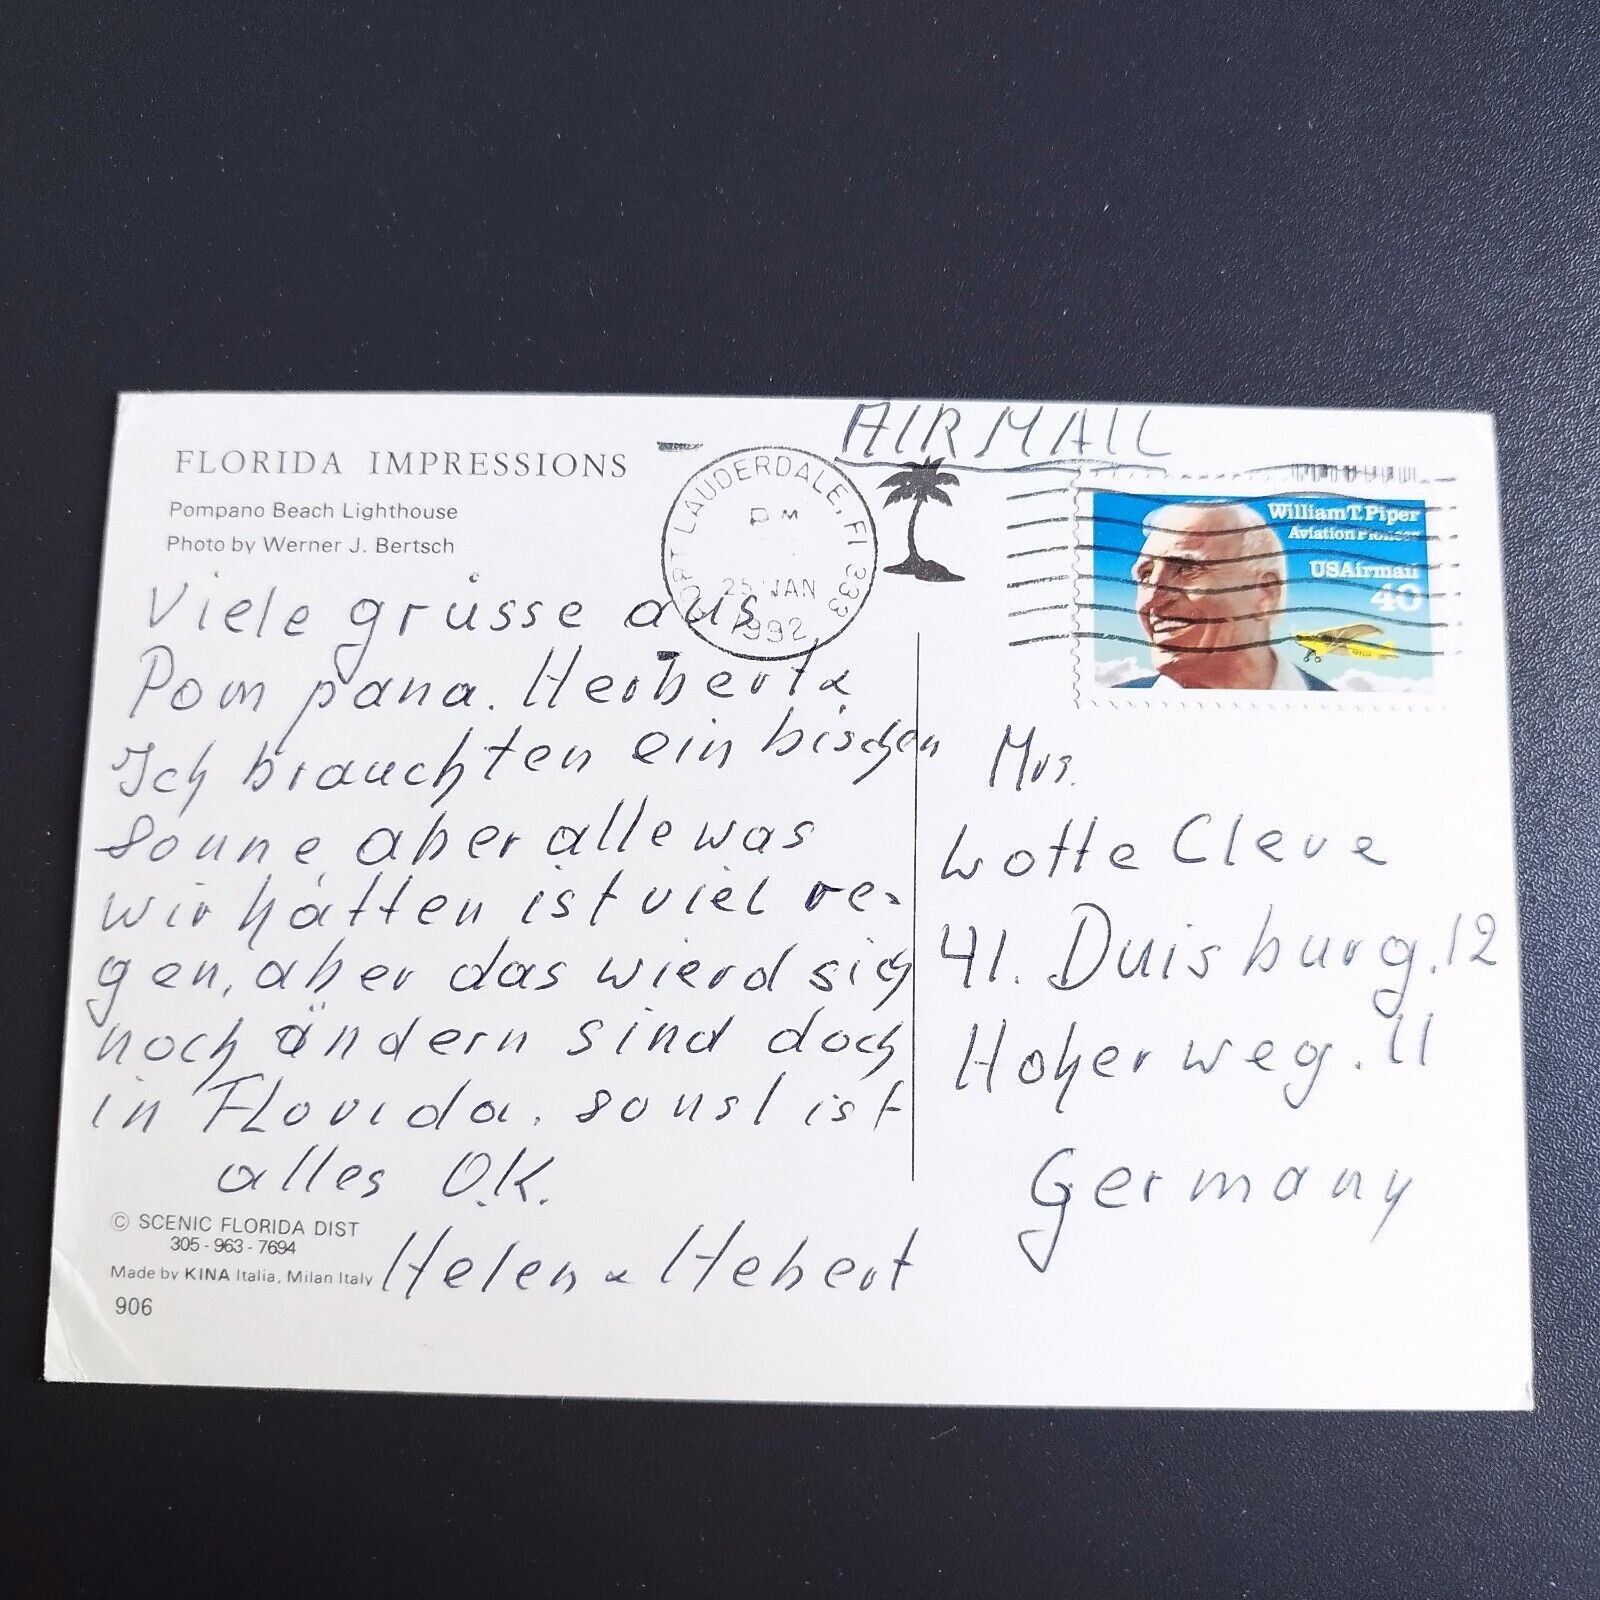 AIRMAIL
FLORIDA IMPRESSIONS
Pompano Beach Lighthouse
Photo by Werner J. Bertsch
FORT LAUDERDALE, FL 333
PM
25 JAN
1992
William T. Piper
Aviation Pioneer
USAirmail
40
Viele grüsse aus
Pompana. Herbert &
Ich brauchten ein bischen
Sonne, aber alle was
wir hatten ist viel re-
gen, aber das wierd sich
noch ändern sind doch
in Florida. sonst ist
alles O.K.
Helen & Hebert
© SCENIC FLORIDA DIST
305-963-7694
Made by KINA Italia, Milan Italy
906
Mrs.
Lotte Cleve
41. Duisburg. 12
Hoherweg. 11
Germany